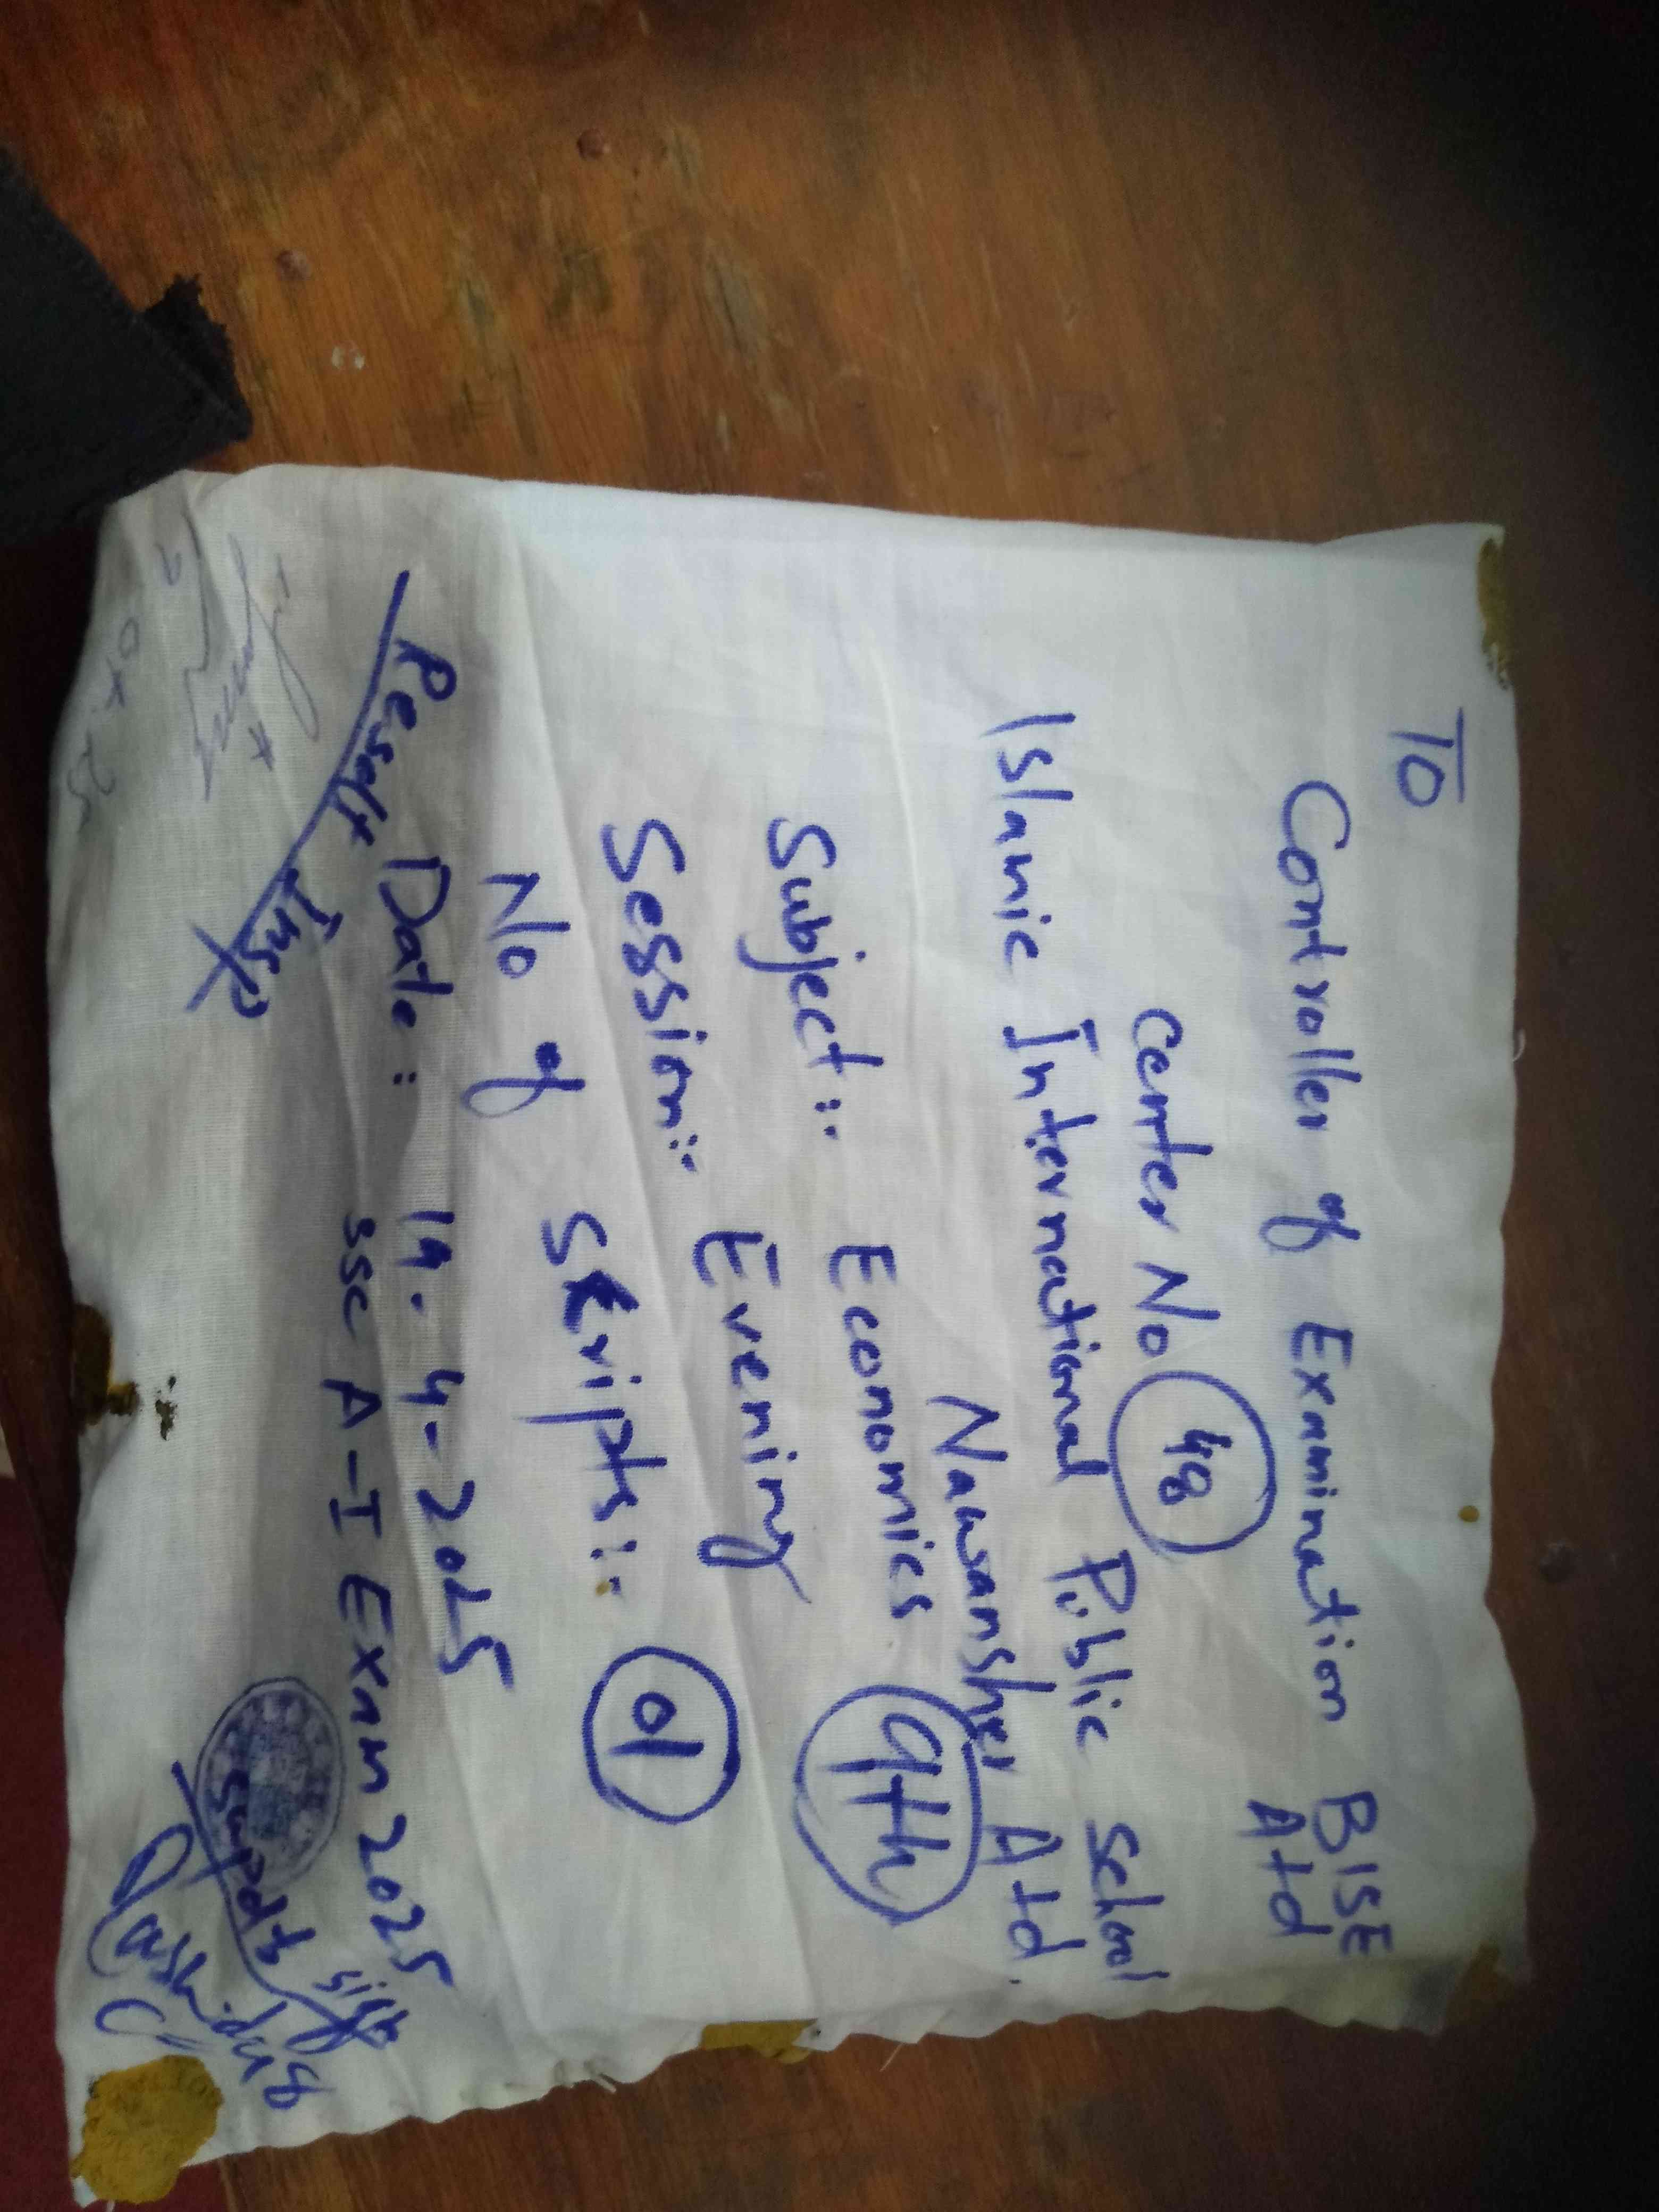 TO
Controller of Examination BISE
Atd
Center No 48
Islamic International Public School
Nawansher Atd.
Subject:. Economics 9th
Session:. Evening
No of Scripts:. 01
Date: 14-4-2025
SSC A-I Exam 2025
Insp
Supdt Sign